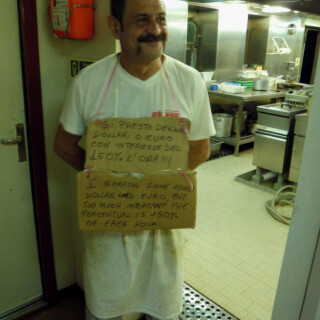 SI PRESTA DENARO
DOLLARI O EURO
CON INTERESSE DEL
150% L'ORA!!!
I BORROW SOME
DOLLAR AND EURO BUT
TOO MUCH THE
PERCENTUAL IS 150%
OF EACH HOUR